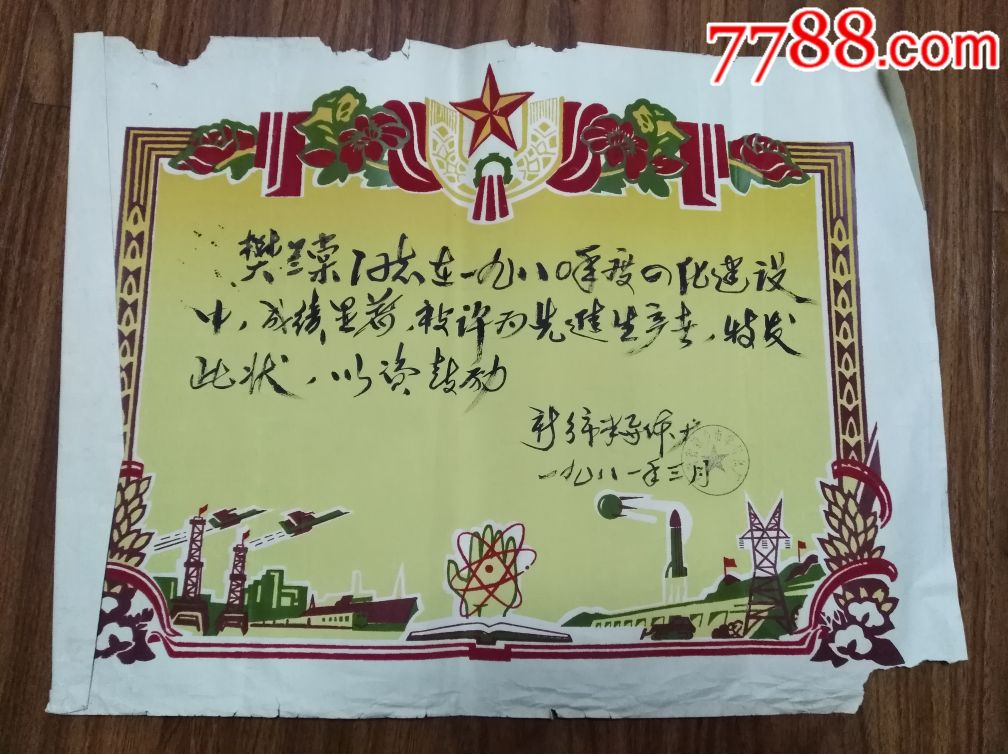 7788.com
樊兰荣同志在一九八〇年度四化建设
中，成绩显著，被评为先進生产者，特发
此状，以资鼓励
新乡市半导体厂
一九八一年三月